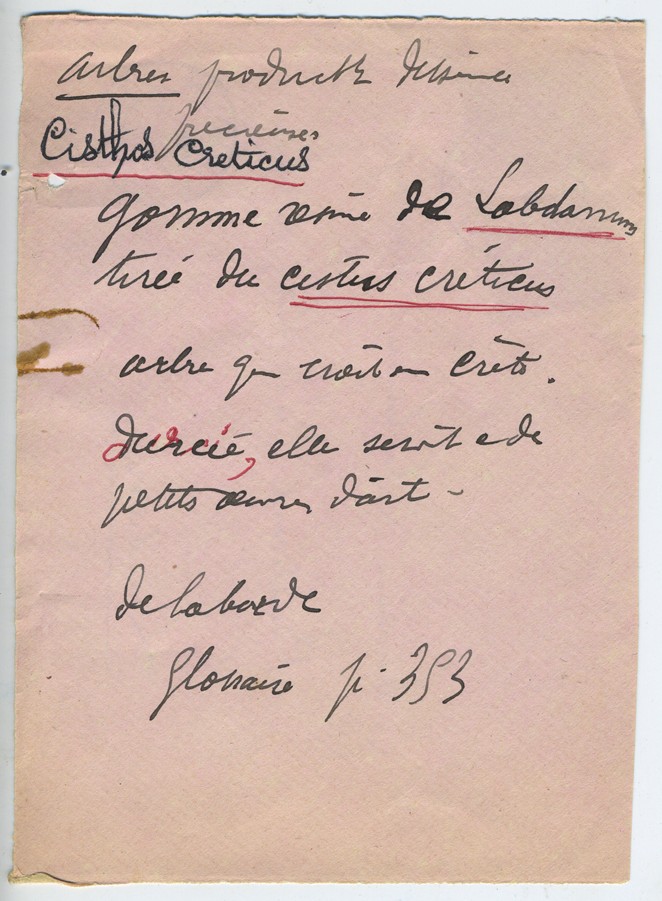 arbres producteurs d'essences
précieuses
Cisthos Creticus
gomme résine de Labdanum
tirée du cistus créticus
arbre qui croît en Crète.
Durcie, elle servit à de
petits œuvres d'art -
de Laborde
Glossaire p. 353